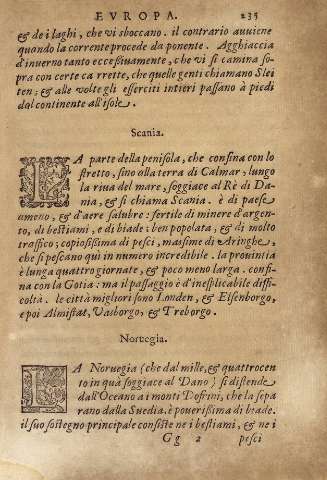 EVROPA. 235
& de i laghi, che vi sboccano. il contrario auuiene
quando la corrente procede da ponente. Agghiaccia
d'inuerno tanto eccessiuamente, che vi si camina so-
pra con certe carrette, che quelle genti chiamano Slei
ten; & alle volte gli esserciti intieri passano à piedi
dal continente all'isole.
Scania.
LA parte della penisola, che confina con lo
stretto, sino alla terra di Calmar; lungo
la riua del mare, soggiace al Rè di Da-
nia, & si chiama Scania. è di paese
ameno, & d'aere salubre: fertile di minere d'argen-
to, di bestiami, e di biade: ben popolata, & di molto
traffico; copiosissima di pesci, massime di Aringhe,
che si pescano qui in numero incredibile. la prouintia
è lunga quattro giornate, & poco meno larga. confi-
na con la Gotia: ma il passaggio è d'inesplicabile diffi-
coltà. le città migliori sono Lunden, & Elsenborgo,
e poi Almistat, Vasborgo, & Treborgo.
Noruegia.
LA Noruegia (che dal mille, & quattrocen
to in quà soggiace al Dano) si distende
dall'Oceano a i monti Dofrini, che la sepa
rano dalla Suedia. è pouerissima di biade.
il suo sostegno principale consiste ne i bestiami, & ne i
Gg 2 pesci